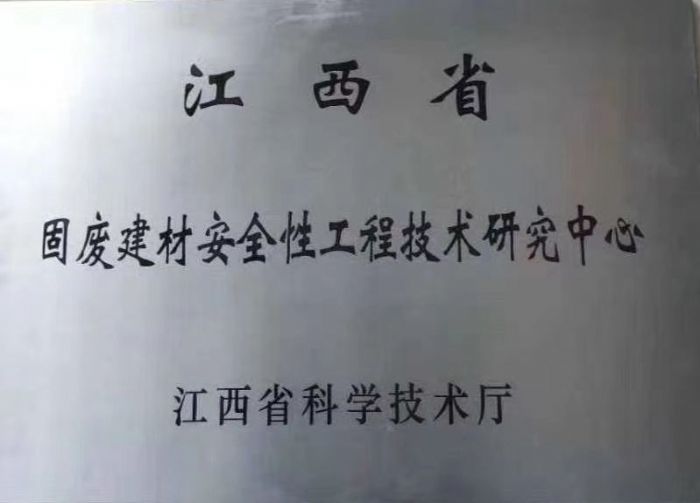 江西省
固废建材安全性工程技术研究中心
江西省科学技术厅